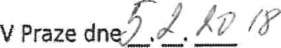 V Praze dne 5.2.2018